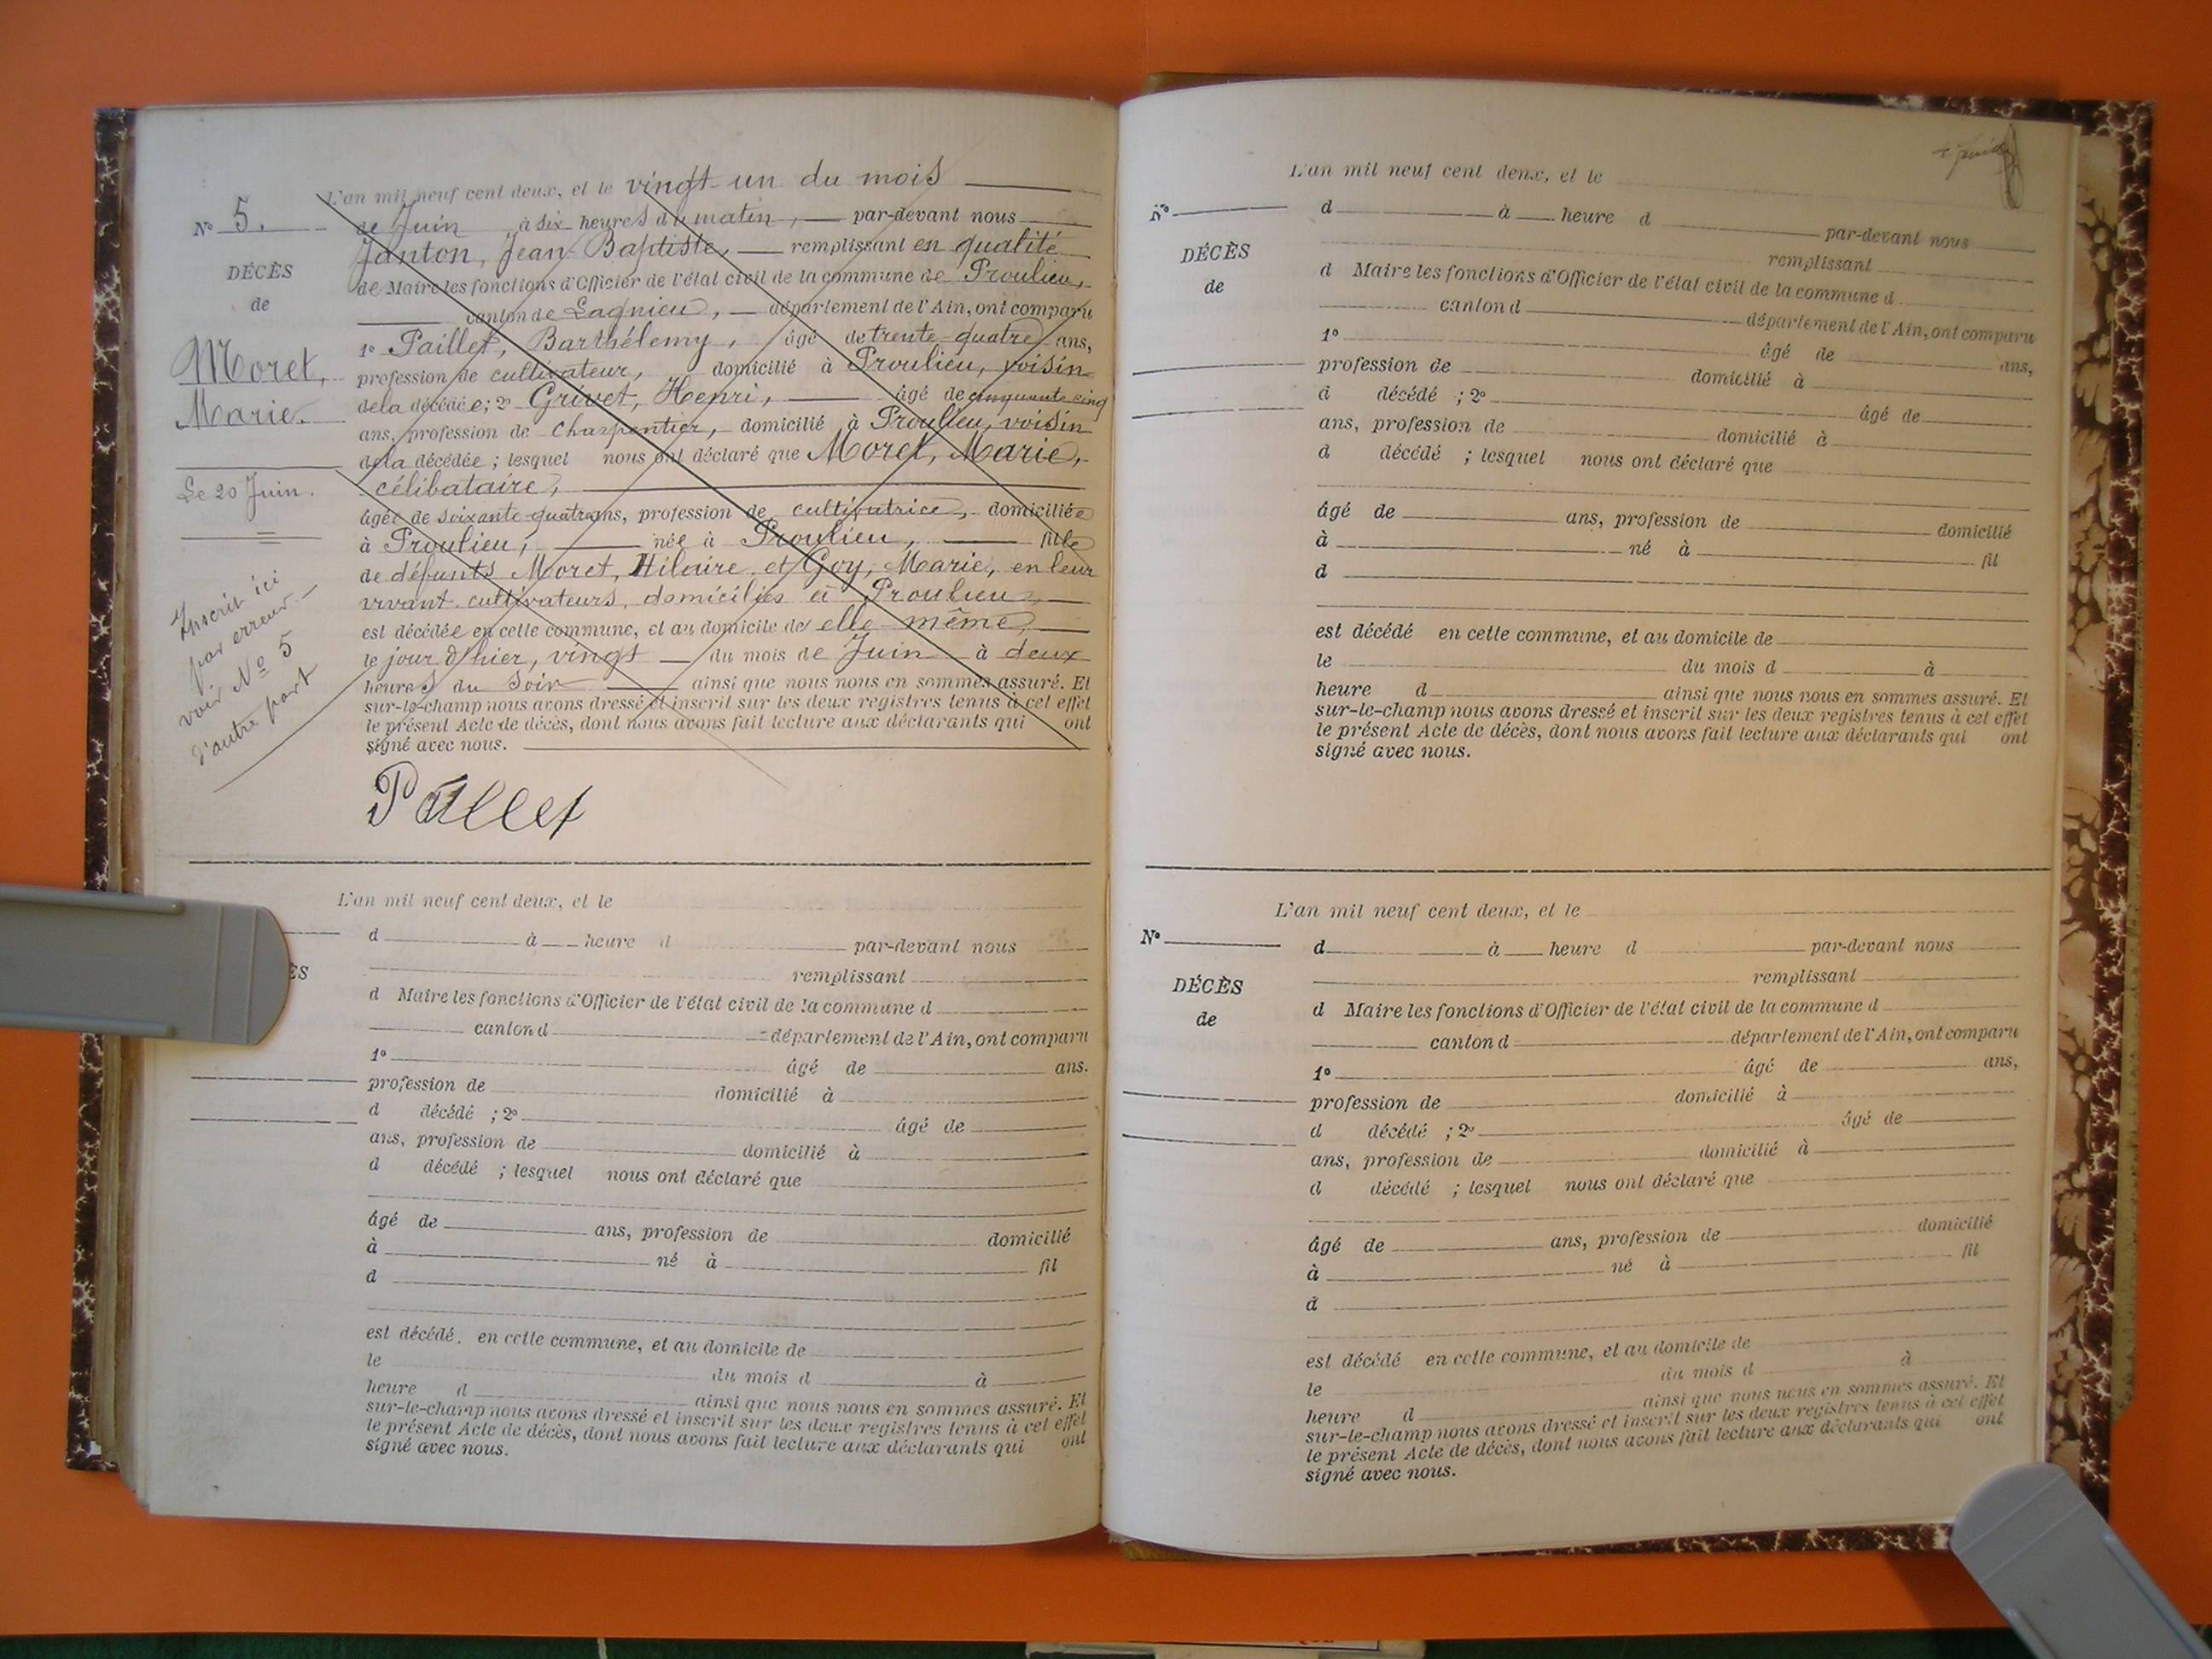 L'an mil neuf cent deux, et le vingt-un du mois
de Juin à six heures du matin, par-devant nous
Janton, Jean Baptiste, remplissant en qualité
de Maire les fonctions d'Officier de l'état civil de la commune de Proulieu,
canton de Lagnieu, département de l'Ain, ont comparu
1º Paillet, Barthélemy, âgé de trente-quatre ans,
profession de cultivateur, domicilié à Proulieu, voisin
de la décédée; 2º Grivet, Henri, âgé de cinquante cinq
ans, profession de Charpentier, domicilié à Proulieu, voisin
de la décédée; lesquel nous ont déclaré que Moret, Marie,
célibataire,
âgée de soixante-quatre ans, profession de cultivatrice, domiciliée
à Proulieu, née à Proulieu, fille
de défunts Moret, Hilaire, et Goy, Marie, en leur
vivant cultivateurs, domiciliés à Proulieu,
est décédée en cette commune, et au domicile de elle-même,
le jour d'hier, vingt du mois de Juin à deux
heures du soir ainsi que nous nous en sommes assuré. Et
sur-le-champ nous avons dressé et inscrit sur les deux registres tenus à cet effet
le présent Acte de décès, dont nous avons fait lecture aux déclarants qui ont
signé avec nous.
Nº 5.
DÉCÈS
de
Moret,
Marie.
Le 20 Juin.
Inscrit ici
par erreur
voir Nº 5
d'autre part
Paillet
L'an mil neuf cent deux, et le
d à heure d par-devant nous
remplissant
d Maire les fonctions d'Officier de l'état civil de la commune d
canton d département de l'Ain, ont comparu
1º âgé de ans.
profession de domicilié à
d décédé ; 2º âgé de
ans, profession de domicilié à
d décédé ; lesquel nous ont déclaré que
âgé de ans, profession de domicilié
à né à fil
d
est décédé. en cette commune, et au domicile de
le du mois d à
heure d ainsi que nous nous en sommes assuré. Et
sur-le-champ nous avons dressé et inscrit sur les deux registres tenus à cet effet
le présent Acte de décès, dont nous avons fait lecture aux déclarants qui ont
signé avec nous.
ÈS
L'an mil neuf cent deux, et le
Nº d à heure d par-devant nous
DÉCÈS
de
remplissant
d Maire les fonctions d'Officier de l'état civil de la commune d
canton d département de l'Ain, ont comparu
1º âgé de ans,
profession de domicilié à
d décédé ; 2º âgé de
ans, profession de domicilié à
d décédé ; lesquel nous ont déclaré que
âgé de ans, profession de domicilié
à né à fil
d
est décédé en cette commune, et au domicile de
le du mois d à
heure d ainsi que nous nous en sommes assuré. Et
sur-le-champ nous avons dressé et inscrit sur les deux registres tenus à cet effet
le présent Acte de décès, dont nous avons fait lecture aux déclarants qui ont
signé avec nous.
L'an mil neuf cent deux, et le
Nº d à heure d par-devant nous
DÉCÈS
de
remplissant
d Maire les fonctions d'Officier de l'état civil de la commune d
canton d département de l'Ain, ont comparu
1º âgé de ans,
profession de domicilié à
d décédé ; 2º âgé de
ans, profession de domicilié à
d décédé ; lesquel nous ont déclaré que
âgé de ans, profession de domicilié
à né à fil
d
est décédé en cette commune, et au domicile de
le du mois d à
heure d ainsi que nous nous en sommes assuré. Et
sur-le-champ nous avons dressé et inscrit sur les deux registres tenus à cet effet
le présent Acte de décès, dont nous avons fait lecture aux déclarants qui ont
signé avec nous.